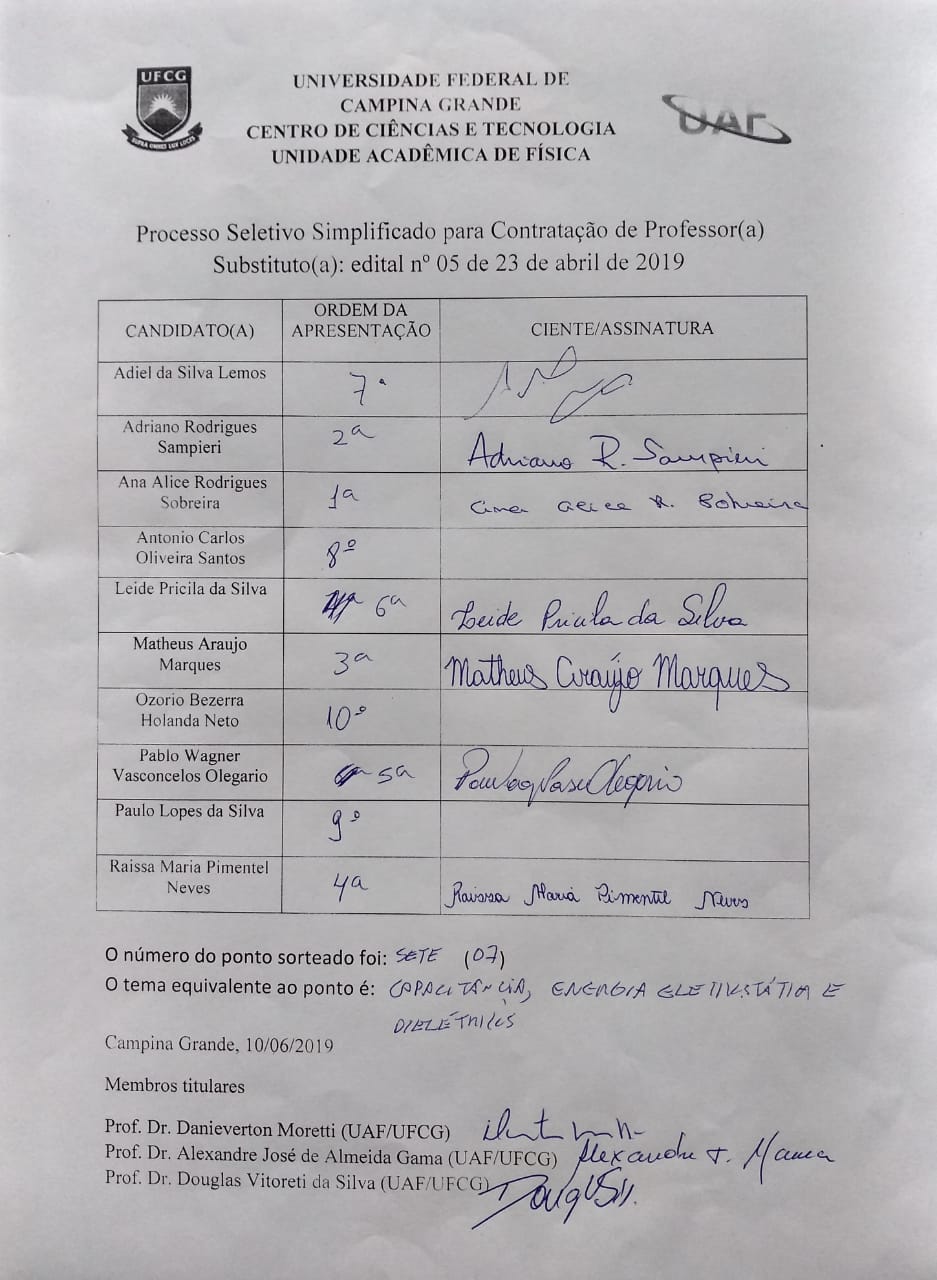 UFCG
SUPRA OMNES LUX LUCES
UNIVERSIDADE FEDERAL DE
CAMPINA GRANDE
CENTRO DE CIÊNCIAS E TECNOLOGIA
UNIDADE ACADÊMICA DE FÍSICA
UAF
Processo Seletivo Simplificado para Contratação de Professor(a)
Substituto(a): edital nº 05 de 23 de abril de 2019
CANDIDATO(A)
ORDEM DA
APRESENTAÇÃO
CIENTE/ASSINATURA
Adiel da Silva Lemos
7ª
Adriano Rodrigues
Sampieri
2ª
Adriano R. Sampieri
Ana Alice Rodrigues
Sobreira
1ª
Ana Alice R. Sobreira
Antonio Carlos
Oliveira Santos
8º
Leide Pricila da Silva
6ª
Leide Pricila da Silva
Matheus Araujo
Marques
3ª
Matheus Araújo Marques
Ozorio Bezerra
Holanda Neto
10º
Pablo Wagner
Vasconcelos Olegario
5ª
Olegario
Paulo Lopes da Silva
9º
Raissa Maria Pimentel
Neves
4ª
Raissa Maria Pimentel Neves
O número do ponto sorteado foi: SETE (07)
O tema equivalente ao ponto é: CAPACITÂNCIA, ENERGIA ELETROSTÁTICA E
DIELÉTRICOS
Campina Grande, 10/06/2019
Membros titulares
Prof. Dr. Danieverton Moretti (UAF/UFCG)
Prof. Dr. Alexandre José de Almeida Gama (UAF/UFCG) Alexandre J. A. Gama
Prof. Dr. Douglas Vitoreti da Silva (UAF/UFCG)